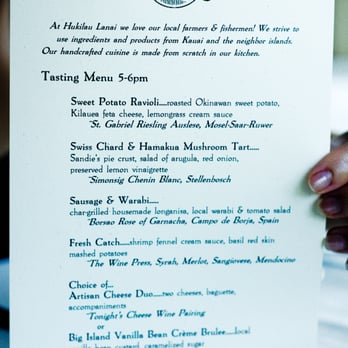 At Hukilau Lanai we love our local farmers & fishermen! We strive to
use ingredients and products from Kauai and the neighbor islands.
Our handcrafted cuisine is made from scratch in our kitchen.
Tasting Menu 5-6pm
Sweet Potato Ravioli.....roasted Okinawan sweet potato,
Kilauea feta cheese, lemongrass cream sauce
"St. Gabriel Riesling Auslese, Mosel-Saar-Ruwer
Swiss Chard & Hamakua Mushroom Tart.....
Sandie's pie crust, salad of arugula, red onion,
preserved lemon vinaigrette
"Simonsig Chenin Blanc, Stellenbosch
Sausage & Warabi.....
char-grilled housemade longanisa, local warabi & tomato salad
"Borsao Rose of Garnacha, Campo de Borja, Spain
Fresh Catch.....shrimp fennel cream sauce, basil red skin
mashed potatoes
"The Wine Press, Syrah, Merlot, Sangiovese, Mendocino
Choice of...
Artisan Cheese Duo.....two cheeses, baguette,
accompaniments
"Tonight's Cheese Wine Pairing
or
Big Island Vanilla Bean Crème Brulee.....local
vanilla bean custard, caramelized sugar